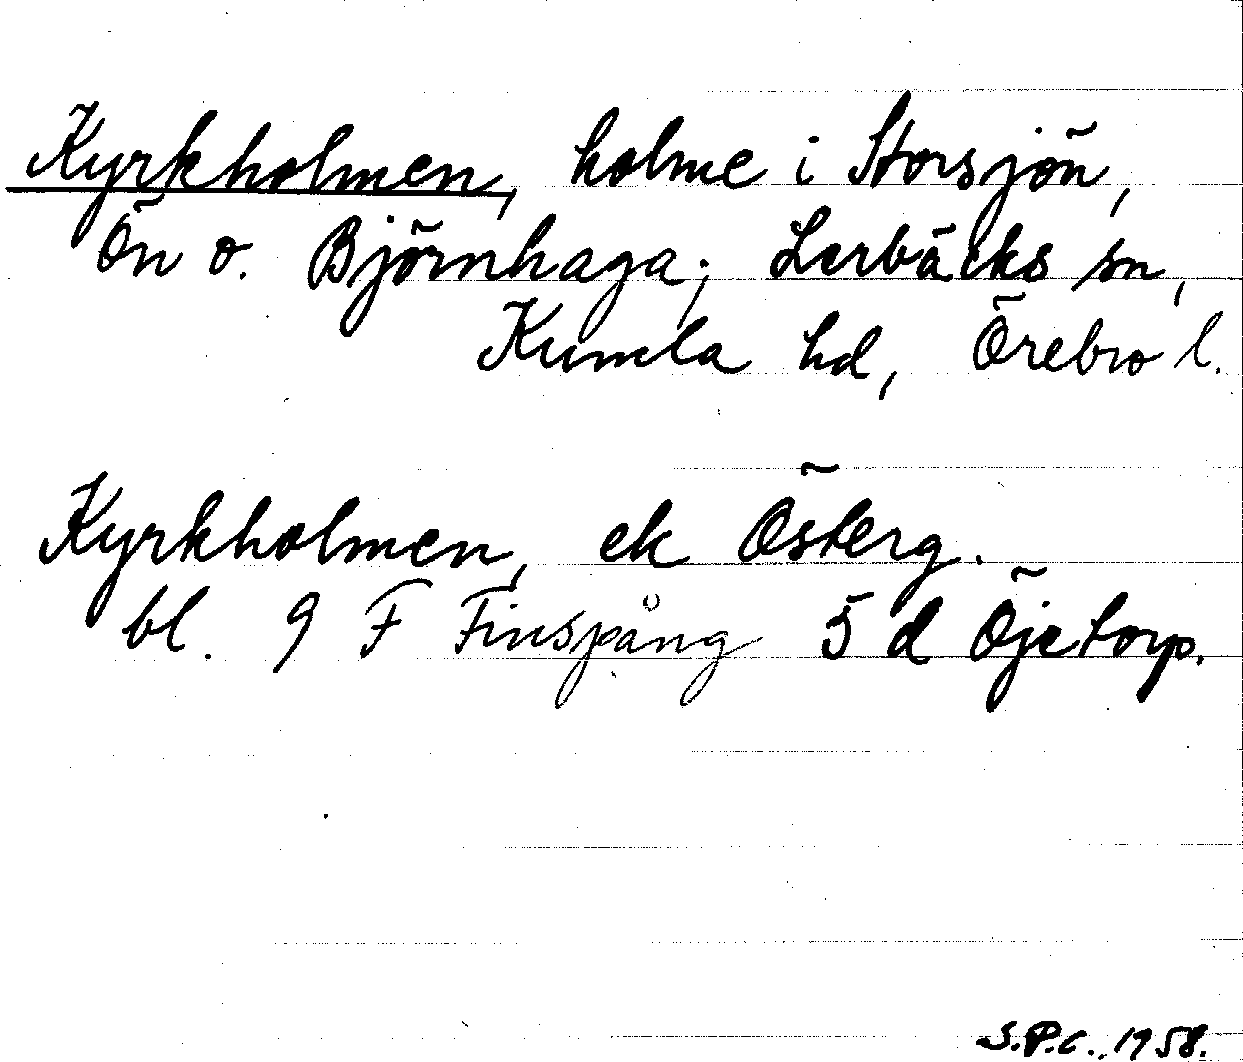 Kyrkholmen, holme i Storsjön,
Ön o. Björnhaga; Lerbäcks sn,
Kumla hd, Örebro l.
Kyrkholmen, ek Österg.
bl. 9 F Finspång 5 d Öjetorp.
S.P.C. 1958.